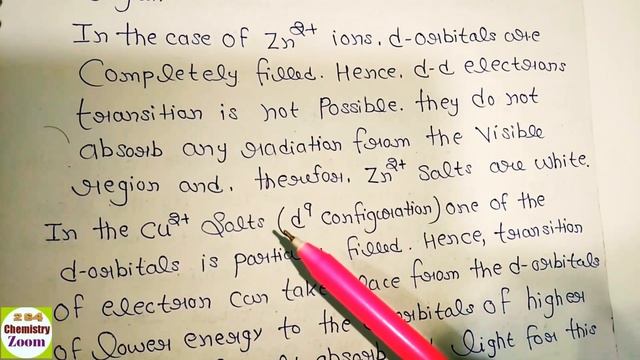 In the case of Zn2+ ions, d-orbitals are
Completely filled. Hence, d-d electrons
transition is not Possible. they do not
absorb any radiation from the Visible
region and, therefor, Zn2+ Salts are white.
In the Cu2+ Salts (d9 configuration) one of the
d-orbitals is filled. Hence, transition
of electron can take from the d-orbitals
of lower energy to the of higher
light for this
284
Chemistry
Zoom